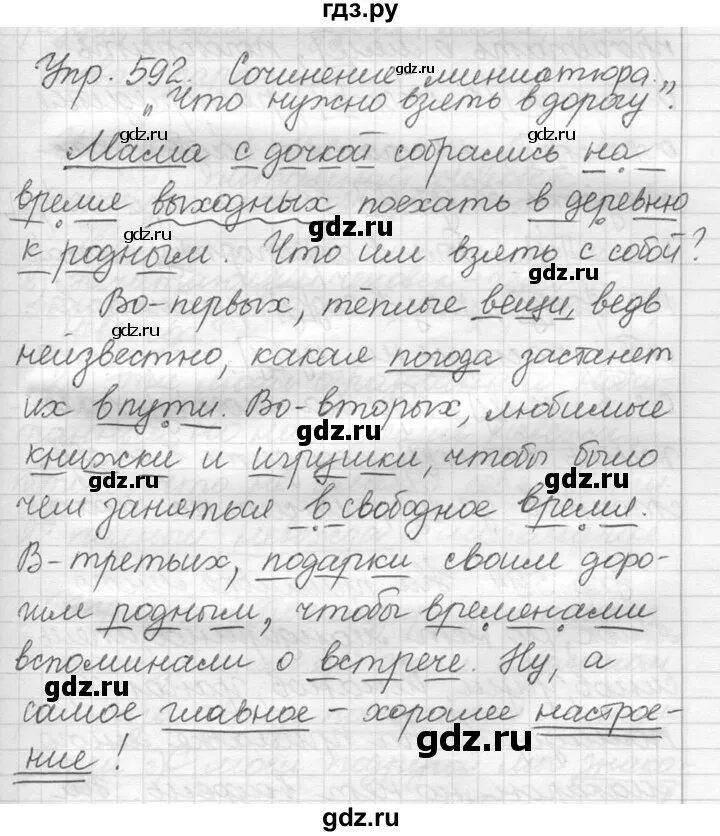 гдз.ру
Упр. 592. Сочинение-миниатюра.
„Что нужно взять в дорогу".
gdz.ru gdz.ru
Мама с дочкой собрались на
время выходных поехать в деревню
gdz.ru gdz.ru gdz.ru
к родным. Что им взять с собой?
gdz.ru
Во-первых, тёплые вещи, ведь
gdz.ru gdz.ru
неизвестно, какая погода застанет
их в пути. Во-вторых, любимые
gdz.ru
книжки и игрушки, чтобы было
gdz.ru gdz.ru
чем заняться в свободное время.
gdz.ru
В-третьих, подарки своим доро-
gdz.ru gdz.ru
жим родным, чтобы временами
вспоминали о встрече. Ну, а
gdz.ru gdz.ru
самое главное – хорошее настрое-
gdz.ru
ние!
gdz.ru